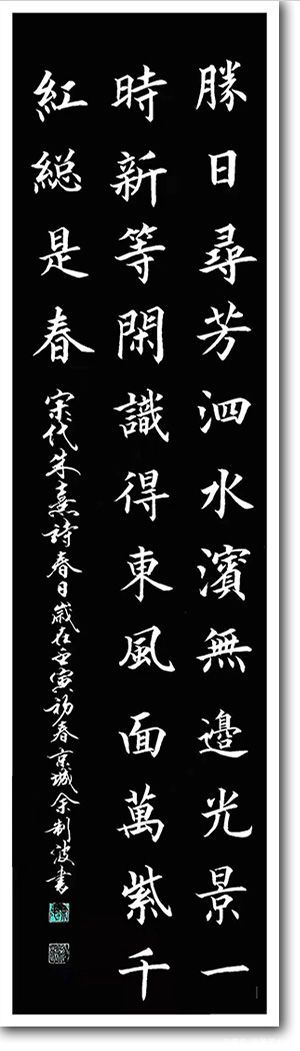 勝日尋芳泗水濱無邊光景一
時新等閑識得東風面萬紫千
紅総是春
宋代朱熹詩春日歲在壬寅初春京城余制波書